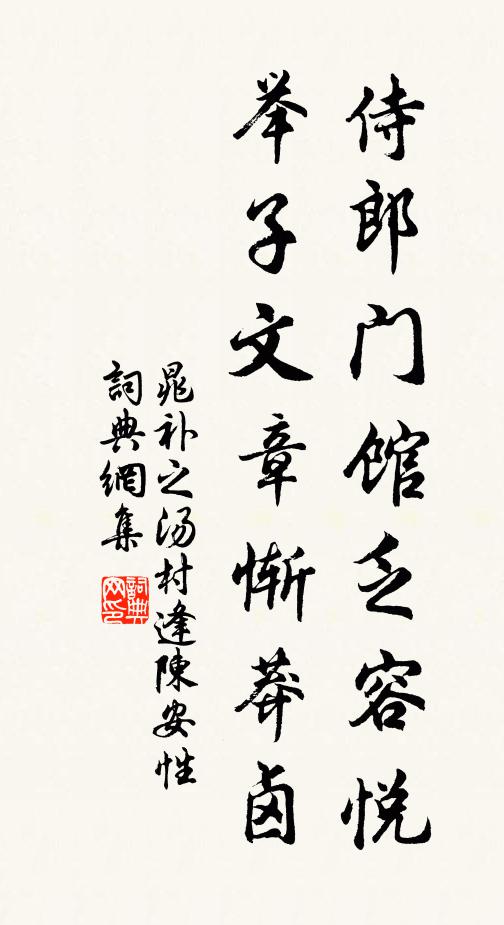 侍郎门馆乏容悦
举子文章惭莽卤
晁补之汤村逢陳安性
詞典網集
詞典网印